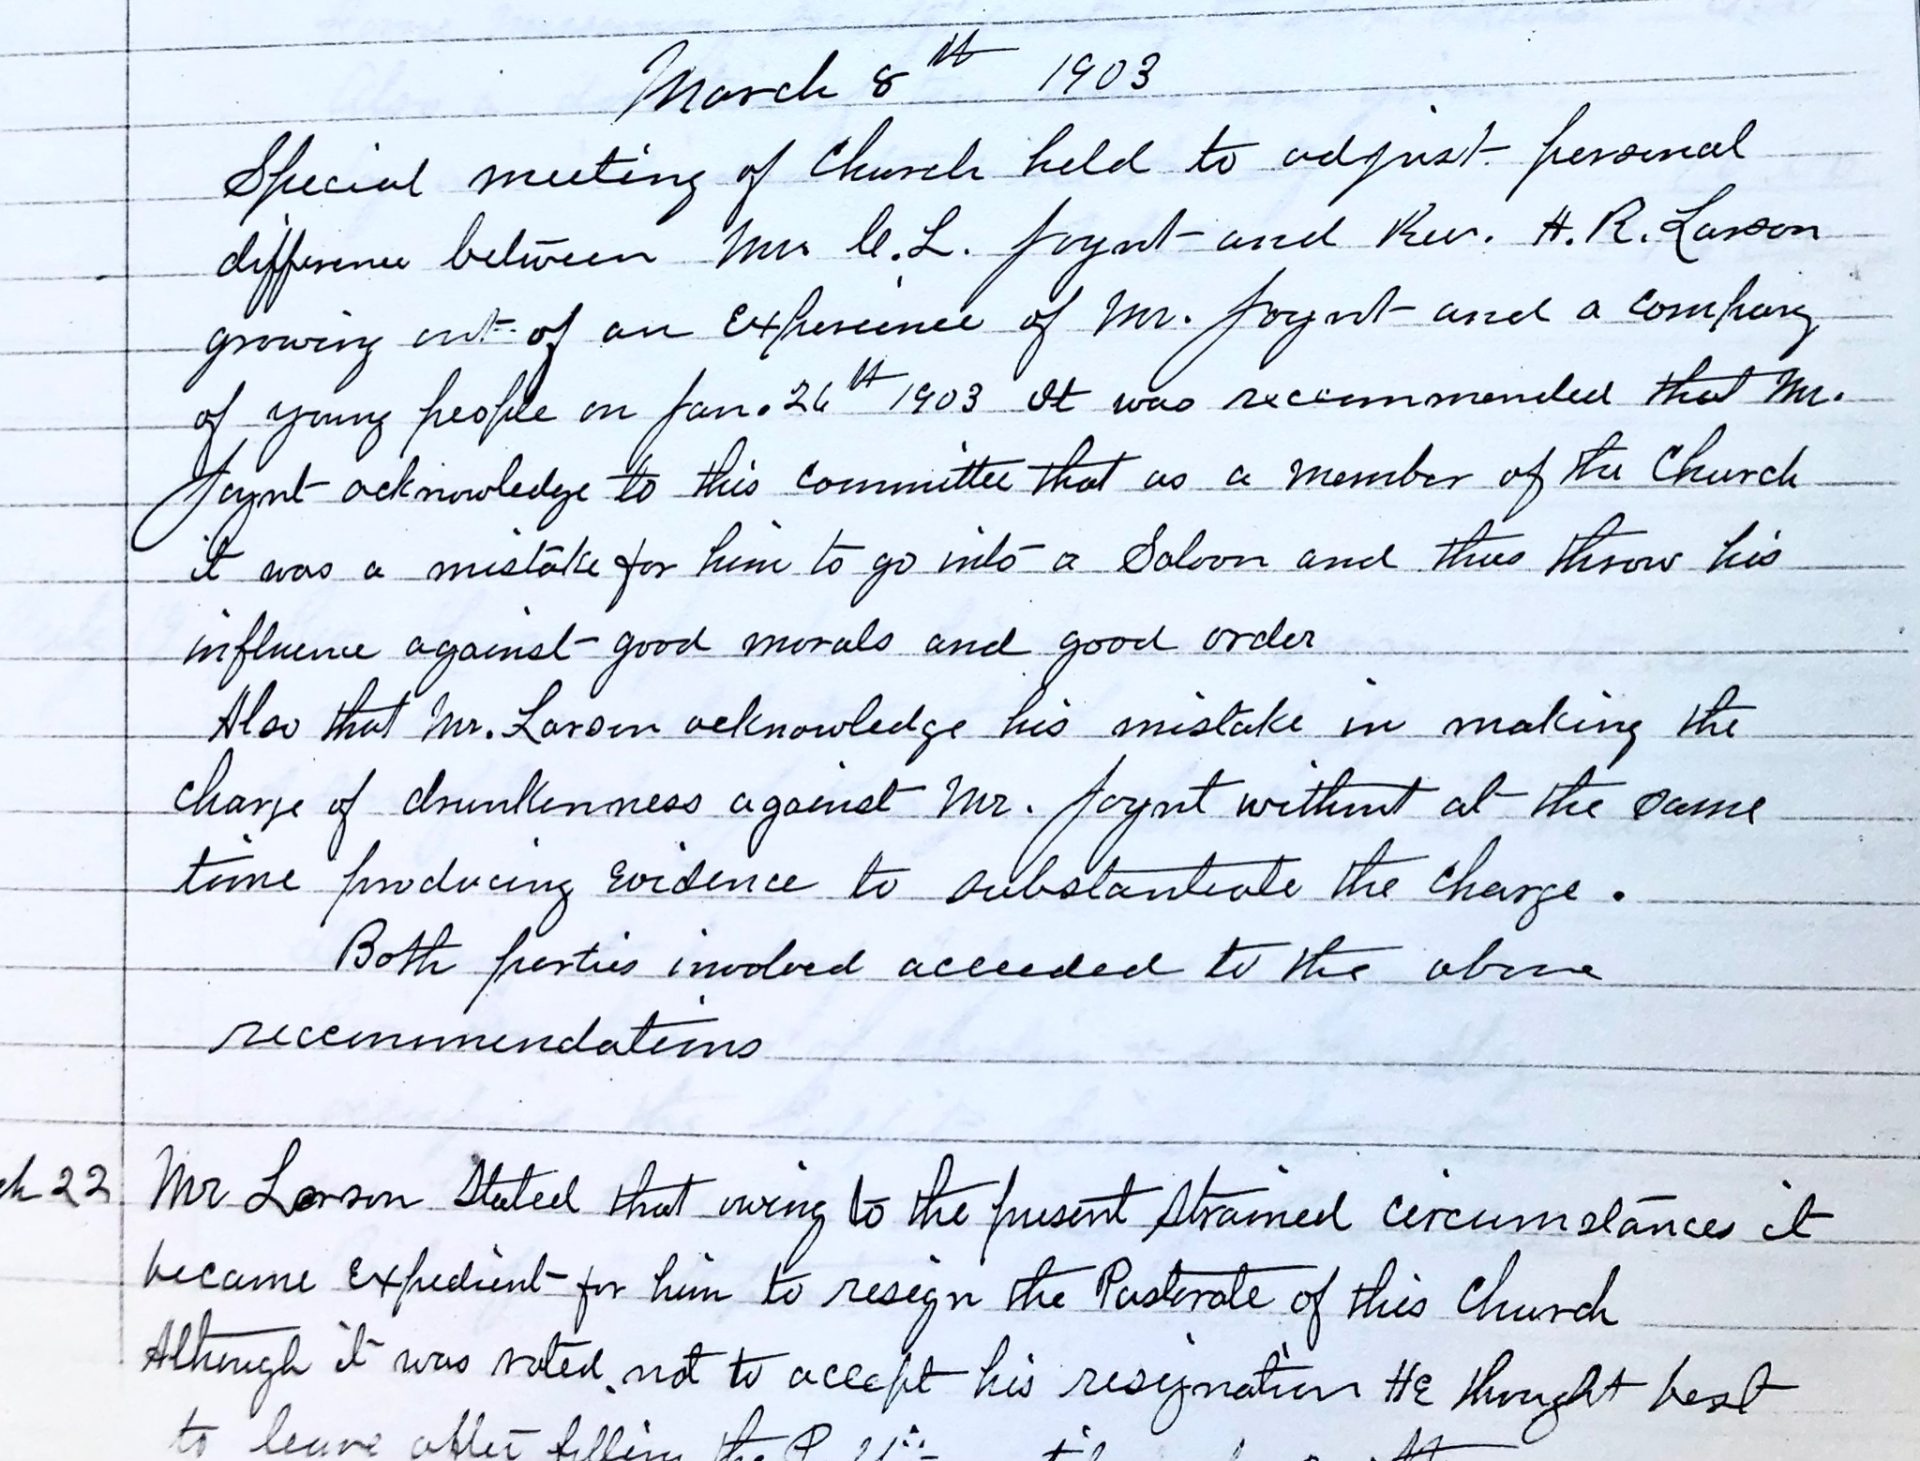 March 8th 1903
Special meeting of Church held to adjust personal
difference between Mr C.L. Joynt and Rev. H.R. Larson
growing out of an Experience of Mr. Joynt and a company
of young people on Jan. 26th 1903 It was recommended that Mr.
Joynt acknowledge to this committee that as a member of the Church
it was a mistake for him to go into a Saloon and thus throw his
influence against good morals and good order
Also that Mr. Larson acknowledge his mistake in making the
charge of drunkenness against Mr. Joynt without at the same
time producing evidence to substantiate the charge.
Both parties involved acceeded to the above
recommendations
ch 22 Mr Larson Stated that owing to the present strained circumstances it
became expedient for him to resign the Pastorate of this Church
Although it was voted not to accept his resignation He thought best
to leave after filling the